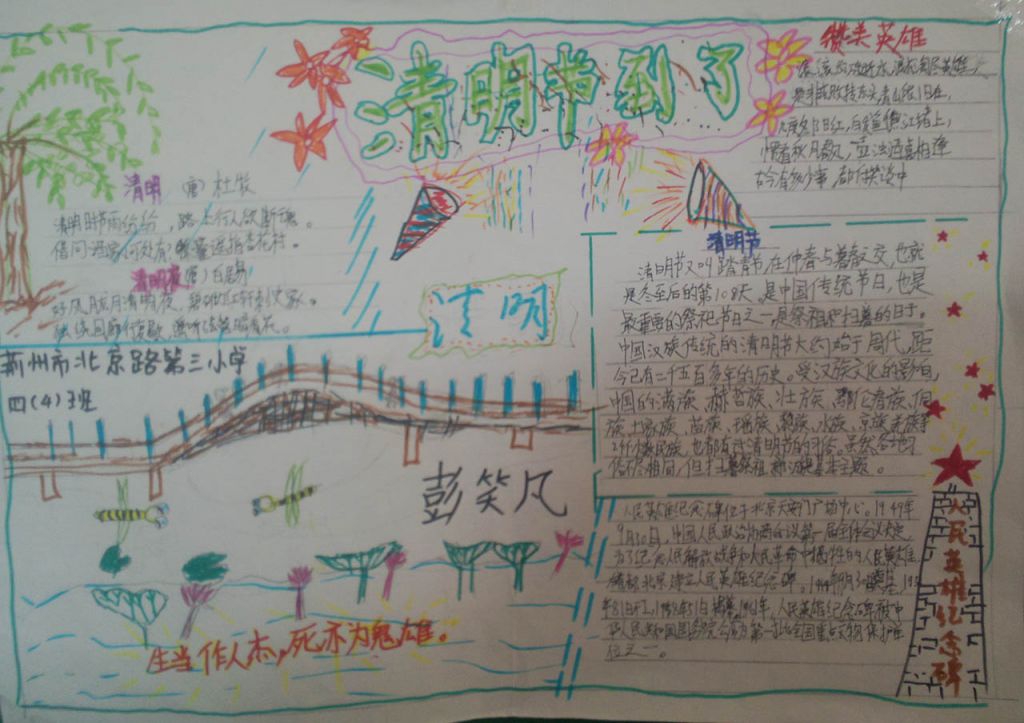 清明节到了
赞美英雄
滚滚长江逝水,浪花淘尽英雄,
是非成败转头 青山依旧在,
几度夕阳红,白 渚上,
惯看秋月 风,一壶浊酒喜相逢
古今多少事,都付笑谈中
清明 (唐)杜牧
清明时节雨纷纷,路上行人欲断魂。
借问酒家何处有,牧童遥指杏花村。
清明夜 (唐)白居易
好风胧月清明夜,碧砌红轩刺史家。
清明
清明节
清明节又叫踏青节,在仲春与暮春之交,也就
是冬至后的第108天。是中国传统节日,也是
最重要的祭祀节日之一,是祭祖和扫墓的日子。
中国汉族传统的清明节大约始于周代,距
今已有二千五百多年的历史。受汉族文化的影响,
中国的满族、赫哲族、壮族、鄂伦春族、侗
族、土家族、苗族、瑶族、黎族、水族、京族、羌族等
24个少数民族,也都有过清明节的习俗。虽然各地习
俗不相同,但扫墓祭祖、 基本主题。
荊州市北京路第三小学
四(4)班
彭笑凡
生当作人杰,死亦为鬼雄。
人民英雄纪念碑位于北京天安门广场中心。1949年
9月30日,中国人民政治协商会议第一届全体会议决定,
为了纪念人民解放战争和人民革命中牺牲的人民英雄,
在首都北京建立人民英雄纪念碑。
年8月1日开工,1958年5月1日揭幕。1961年,人民英雄纪念碑被中
华人民共和国国务院公布为第一批全国重点文物保护单
位之一。
人民英雄纪念碑